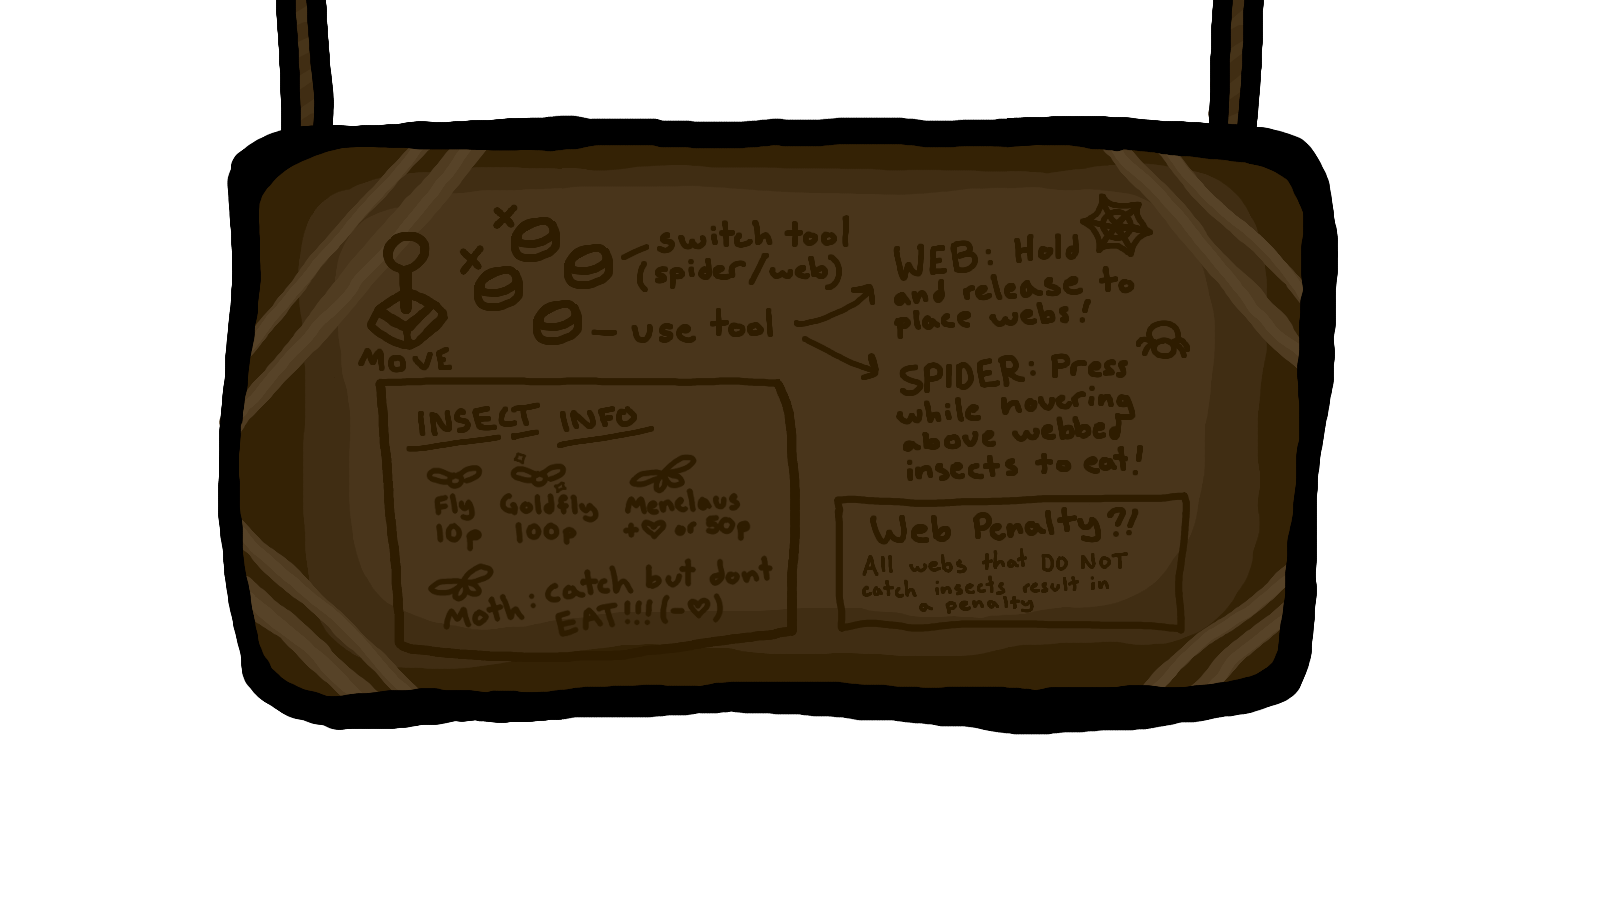 MOVE
switch tool
(spider/web)
use tool
WEB: Hold
and release to
place webs!
SPIDER: Press
while hovering
above webbed
insects to eat!
INSECT INFO
Fly
10p
Goldfly
100p
Menelaus
+♡ or 50p
Moth: catch but dont
EAT!!! (-♡)
Web Penalty?!
All webs that DO NOT
catch insects result in
a penalty